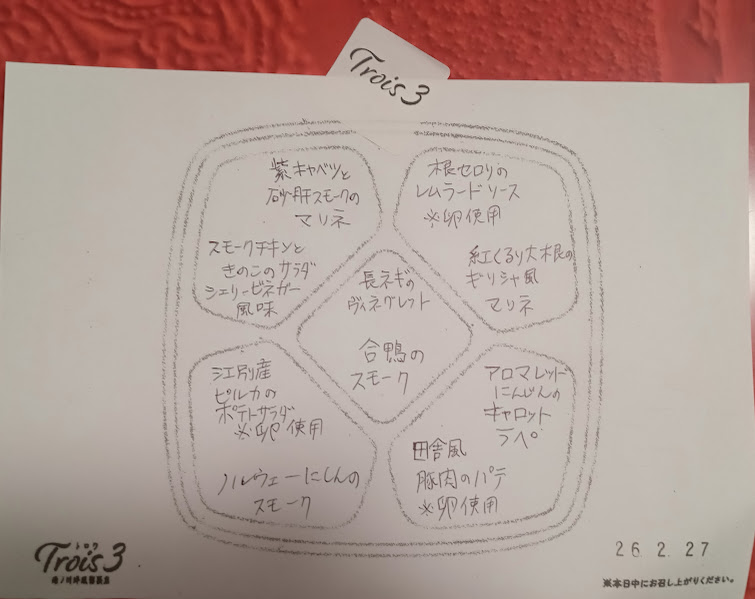 Trois 3
紫キャベツと
砂肝スモークの
マリネ
スモークチキンと
きのこのサラダ
シェリービネガー
風味
根セロリの
レムラードソース
※卵使用
紅くるり大根の
ギリシャ風
マリネ
長ネギの
ヴィネグレット
合鴨の
スモーク
江別産
ピルカの
ポテトサラダ
※卵使用
ノルウェーにしんの
スモーク
アロマレッド
にんじんの
キャロット
ラペ
田舎風
豚肉のパテ
※卵使用
トロワ
Trois 3
26.2.27
※本日中にお召し上がりください。